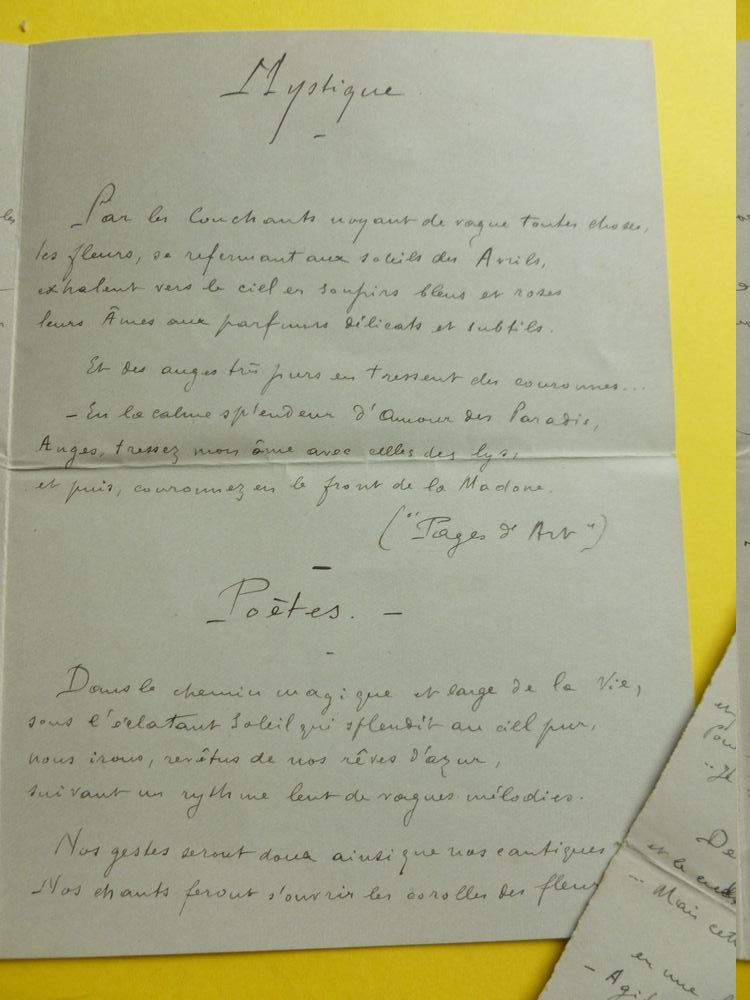 Mystique
Par les Couchants noyant de vague toutes choses,
les fleurs, se refermant aux soleils des Avrils,
exhalent vers le ciel en soupirs bleus et roses
leurs Âmes aux parfums délicats et subtils.
Et des anges très purs en tressent des couronnes...
– En la calme splendeur d'Amour des Paradis,
Anges, tressez mon âme avec celles des lys,
et puis, couronnez en le front de la Madone.
("Pages d'Art")
Poètes. –
Dans le chemin magique et large de la Vie,
sous l'éclatant Soleil qui splendit au ciel pur,
nous irons, revêtus de nos rêves d'azur,
suivant un rythme lent de vagues mélodies.
Nos gestes seront doux ainsi que nos cantiques
Nos chants feront s'ouvrir les corolles des fleur
De
et le
– Mais cett
en une
– Agi